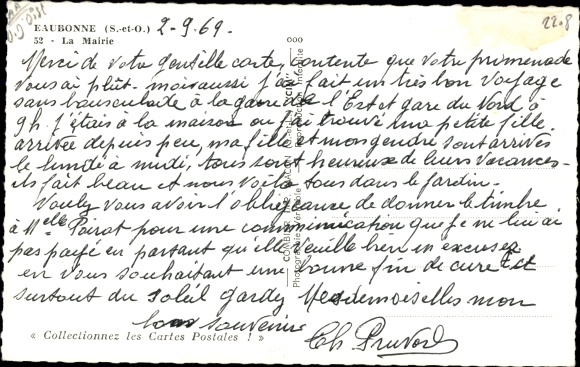 EAUBONNE (S.-et-O.) 2-9.69.
52 - La Mairie
22.8
Merci de votre gentille carte, contente que votre promenade
vous ai plût. moi aussi j'ai fait un très bon voyage
sans bousculade à la gare de l'Est et gare du Nord à
9h. j'étais à la maison ou j'ai trouvé ma petite fille
arrivée depuis peu, ma fille et mon gendre sont arrivés
le lundi à midi, tous sont heureux de leurs vacances.
ils fait beau et nous voila tous dans le jardin.
Voulez vous avoir l'obligeance de donner le timbre
à Melle Poirat pour une communication que je ne lui ai
pas payé en partant qu'elle veuille bien m'excuser
en vous souhaitant une bonne fin de cure Et
surtout du soleil gardez Mesdemoiselles mon
bon souvenir
Ch Pruvost
« Collectionnez les Cartes Postales ! »
COMBIER IMP. MACON
"CIM"
Photographie